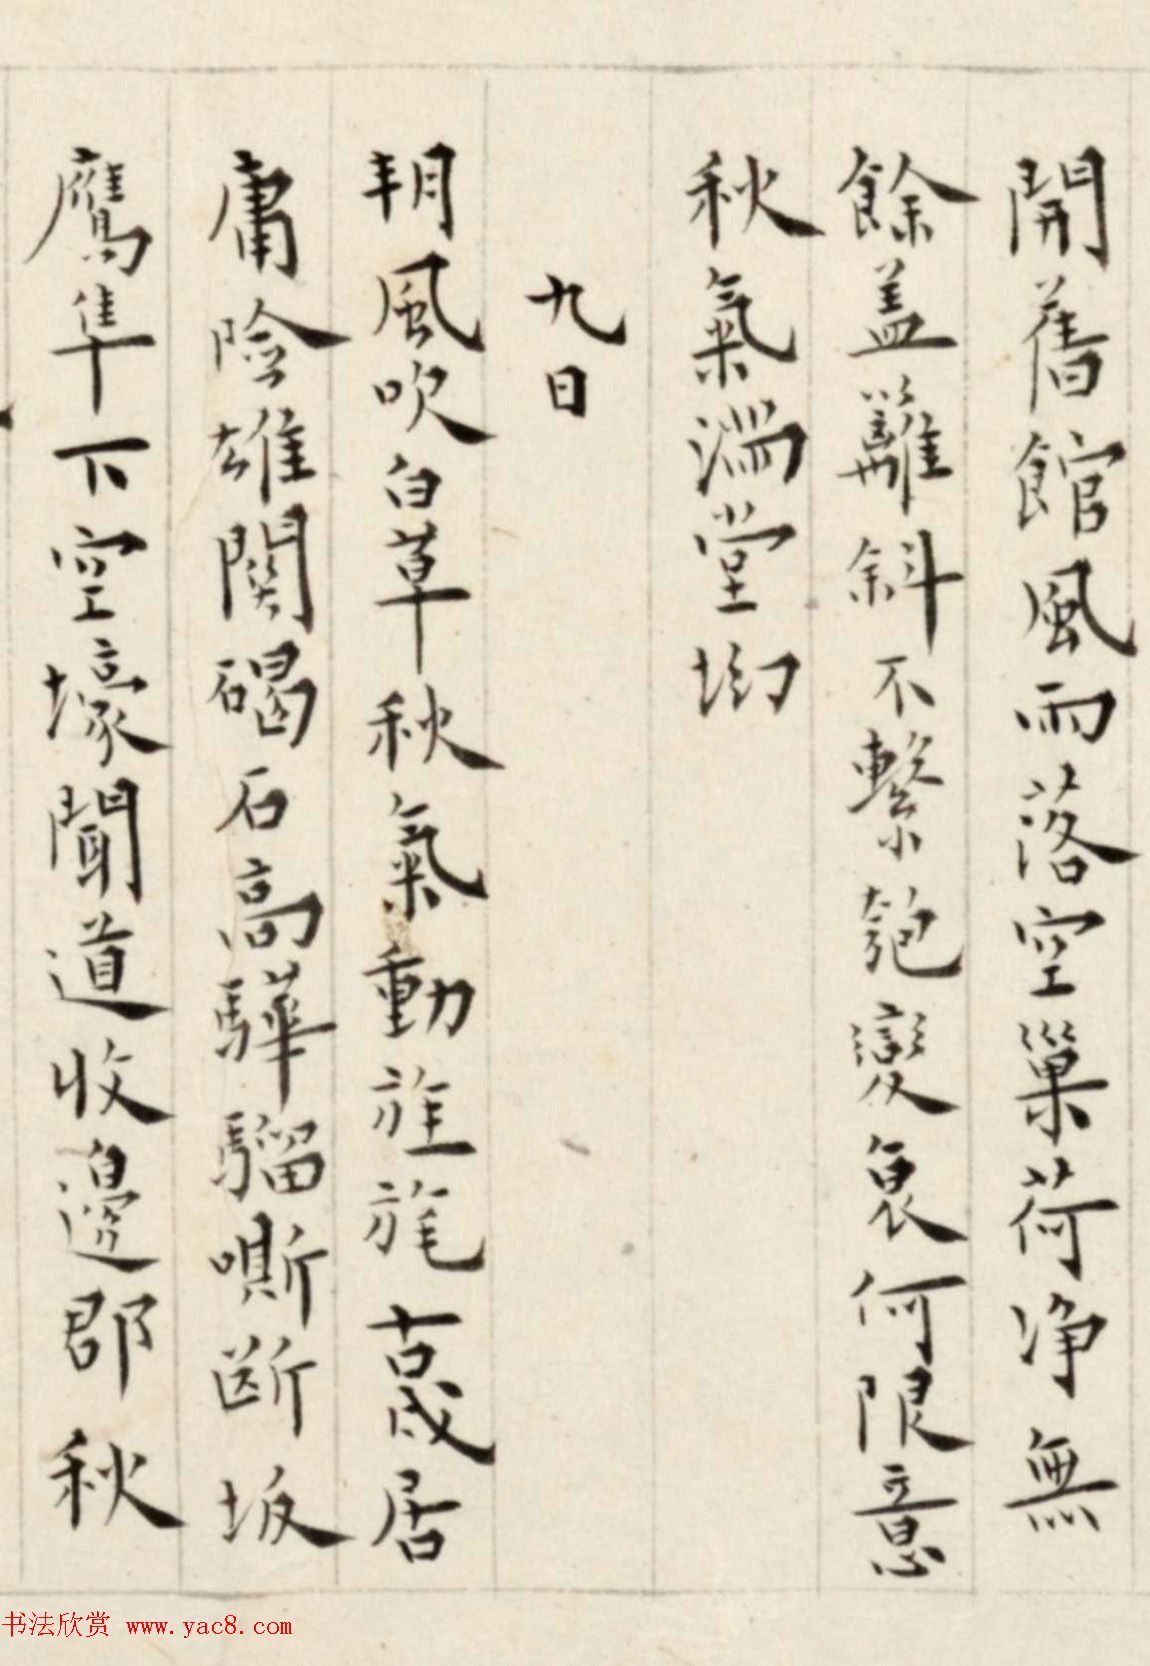 開舊館風雨落空巢荷淨無
餘盖籬斜不繫匏變衰何限意
秋氣滿堂坳
九日
朔風吹白草秋氣動旌旄古戍居
庸險雄關碣石高驊騮嘶斷坂
鷹隼下空壕聞道收邊郡秋
书法欣赏 www.yac8.com